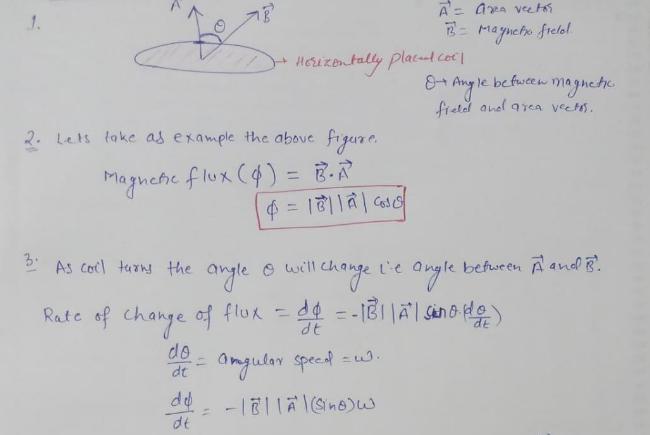 1.
A⃗ θ B⃗
A⃗ = Area vector
B⃗ = Magnetic field.
→ Horizontally placed coil
θ → Angle between magnetic
field and area vector.
2. Lets take as example the above figure.
Magnetic flux (ϕ) = B⃗.A⃗
ϕ = |B⃗| |A⃗| cosθ
3. As coil turns the angle θ will change i.e angle between A⃗ and B⃗.
Rate of change of flux = dϕ/dt = -|B⃗| |A⃗| sinθ.(dθ/dt)
dθ/dt = anagular speed = ω.
dϕ/dt = -|B⃗| |A⃗| (sinθ)ω